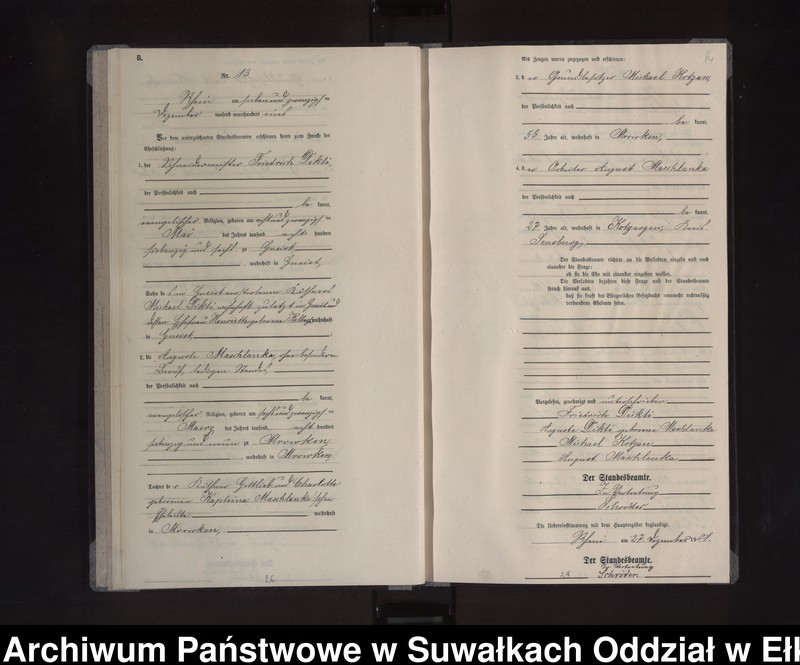 8.
Nr. 13.
Rhein am siebenundzwanzigsten
Dezember tausend neunhundert eins
Vor dem unterzeichneten Standesbeamten erschienen heute zum Zwecke der
Eheschließung:
1. der Schneidermeister Friedrich Dikti,
der Persönlichkeit nach
be kannt,
evangelischer Religion, geboren am achtundzwanzigsten
Mai des Jahres tausend acht hundert
siebenzig und sechs zu Gneist,
, wohnhaft in Gneist,
Sohn des in Gneist verstorbenen Käthners
Michael Dikti, wohnhaft zuletzt in Gneist und
dessen Ehefrau Henriette geborene wohnhaft
in Gneist,
2. die Auguste Maschlanka, ohne besonderen
Beruf, ledigen Standes,
der Persönlichkeit nach
be kannt,
evangelischer Religion, geboren am sechsundzwanzigsten
Maerz des Jahres tausend acht hundert
siebenzig und neun zu Mrowken,
, wohnhaft in Mrowken
Tochter der Käthner Gottlieb und Charlotte
geborenen Kapteina Maschlanka'schen
Eheleute wohnhaft
in Mrowken,
26
Als Zeugen waren zugezogen und erschienen:
3. der Grundbesitzer Michael Kotzan,
der Persönlichkeit nach
be kannt,
55 Jahre alt, wohnhaft in Mrowken,
4. der Arbeiter August Maschlanka
der Persönlichkeit nach
be kannt,
27 Jahre alt, wohnhaft in Kotzargen, Kreis
Sensburg,
Der Standesbeamte richtete an die Verlobten einzeln und nach
einander die Frage:
ob sie die Ehe mit einander eingehen wollen.
Die Verlobten bejahten diese Frage und der Standesbeamte
sprach hierauf aus,
daß sie kraft des Bürgerlichen Gesetzbuchs nunmehr rechtmäßig
verbundene Eheleute seien.
Vorgelesen, genehmigt und unterschrieben
Friedrich Dikti
Auguste Dikti geborene Maschlanka
Michael Kotzan
August Maschlanka
Der Standesbeamte.
In Vertretung
Schröder
Die Uebereinstimmung mit dem Hauptregister beglaubigt.
Rhein am 27. Dezember 1901.
Der Standesbeamte.
In Vertretung
Schröder.
Archiwum Państwowe w Suwałkach Oddział w Ełk